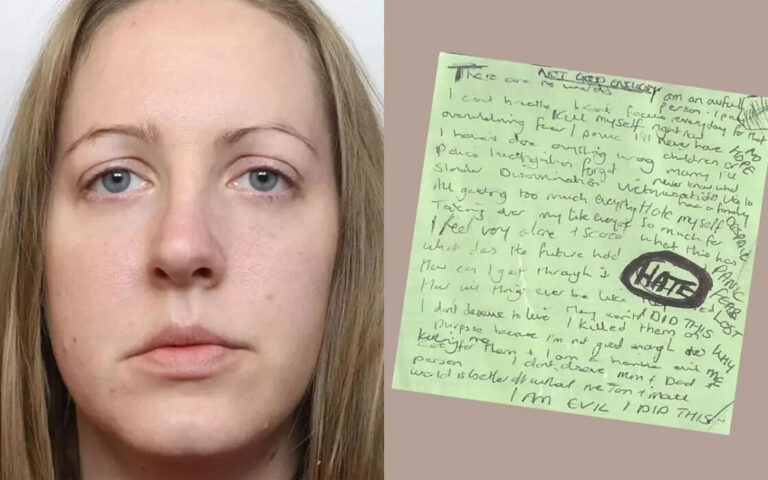 NOT GOOD ENOUGH
There are no words I am an awful
person I pay
I can't breathe I can't focus every day for that
Kill myself right now
overwhelming fear / panic I'll never have NO
HOPE
I haven't done anything wrong
children or marry I'll
never know what
Police investigation forget
like to
have a family
Slander Discrimination Victimisation
All getting too much everything Hate myself
DESPAIR
Taking over my life
so much for
what this has
I feel very alone + scared
What does the future hold
PANIC
How can I get through it
HATE
FEAR
How will things ever be like they used
LOST
I DID THIS
I don't deserve to live
I killed them on
WHY
Purpose because I'm not good enough to
ME
care for them + I am a horrible evil
person
I don't deserve mum + Dad
world is better off without me Tom + mate
I AM EVIL I DID THIS